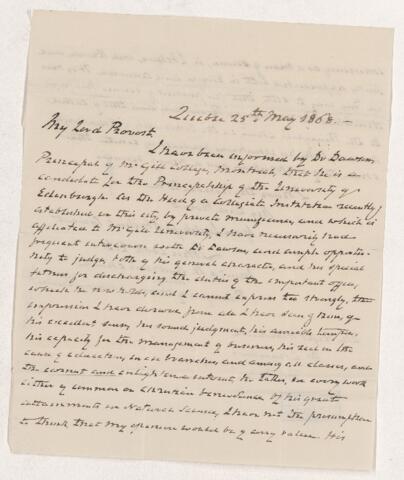 Quebec 25th May 1868.
My Lord Provost,
I have been informed by Dr Dawson,
Principal of McGill College, Montreal, that he is a
candidate for the Principalship of the University of
Edinburgh. As the Head of a Collegiate Institution recently
established in this city, by private munificence, and which is
affiliated to McGill University, I have necessarily had
frequent intercourse with Dr Dawson, and ample opportu-
nity to judge, both of his general character, and his special
fitness for discharging the duties of the important office,
which he now holds, and I cannot express too strongly, the
impression I have derived from all I have seen of him, of
his excellent sense, his sound judgment, his amiable temper,
his capacity for the management of business, his zeal in the
cause of education, in all branches, and among all classes, and
the earnest and enlightened interest he takes, in every work
either of common or Christian benevolence. Of his great
attainments in Natural Science, I have not the presumption
to think that my opinion would be of any value. His